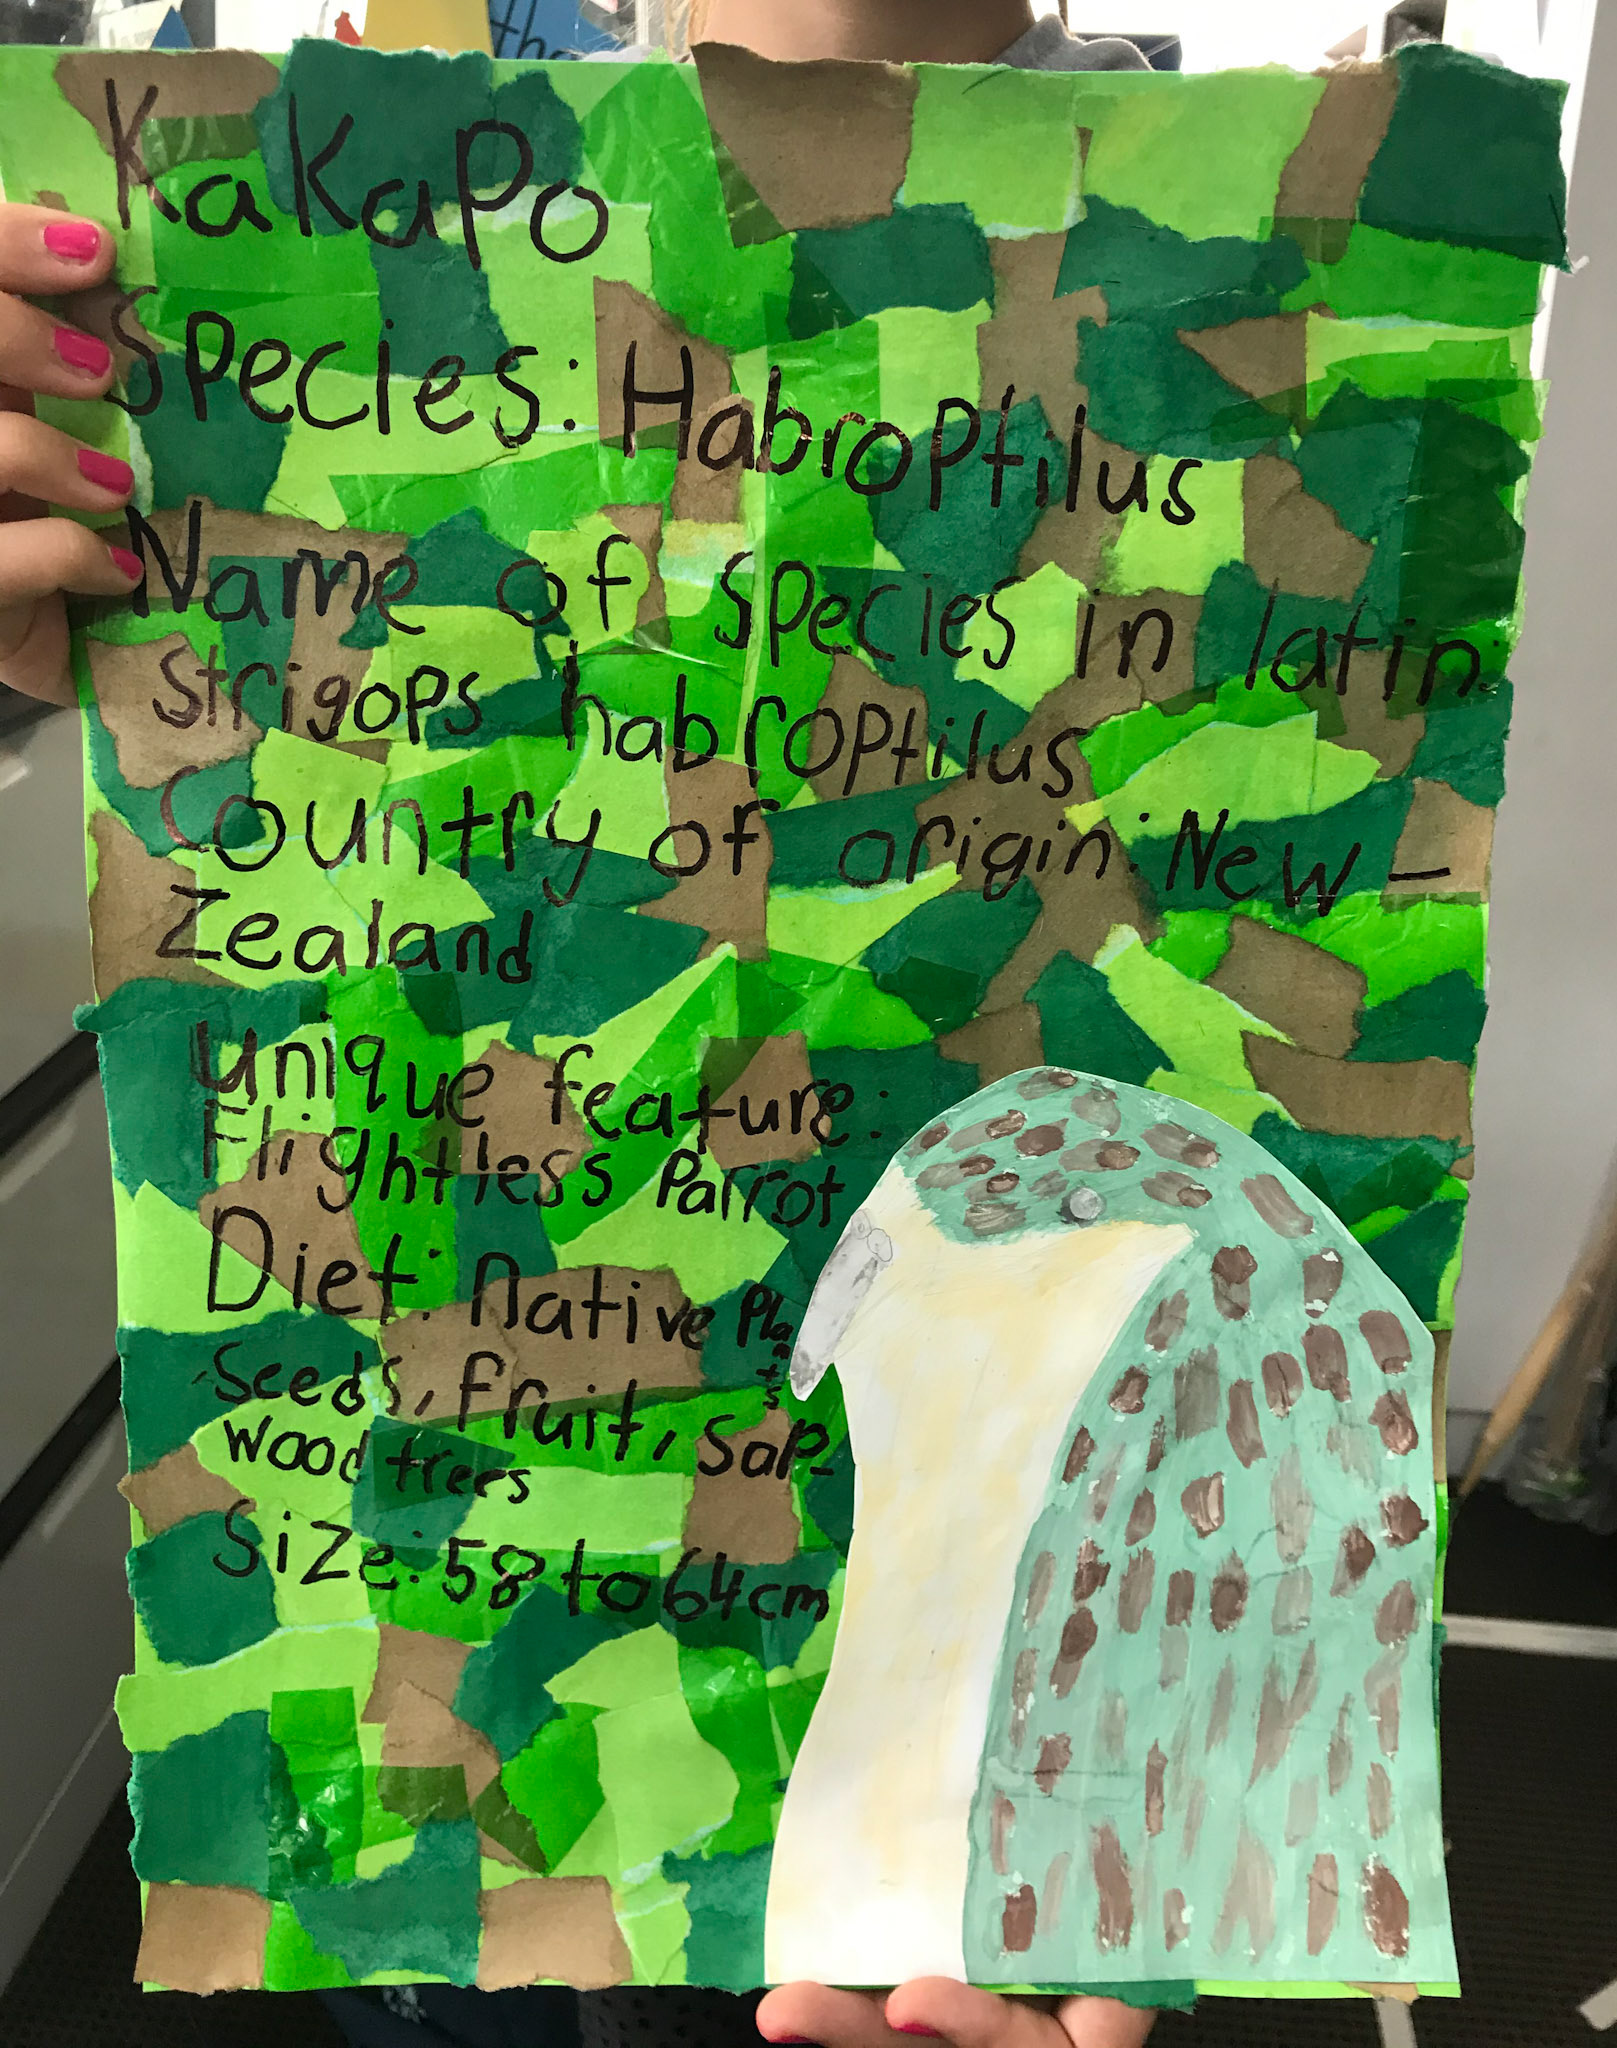 the
Kakapo
Species: Habroptilus
Name of species in latin:
Strigops habroptilus
Country of origin: New-
Zealand
Unique feature:
Flightless Parrot
Diet: native Plants
Seeds, fruit, Sap-
wood trees
Size: 58 to 64cm